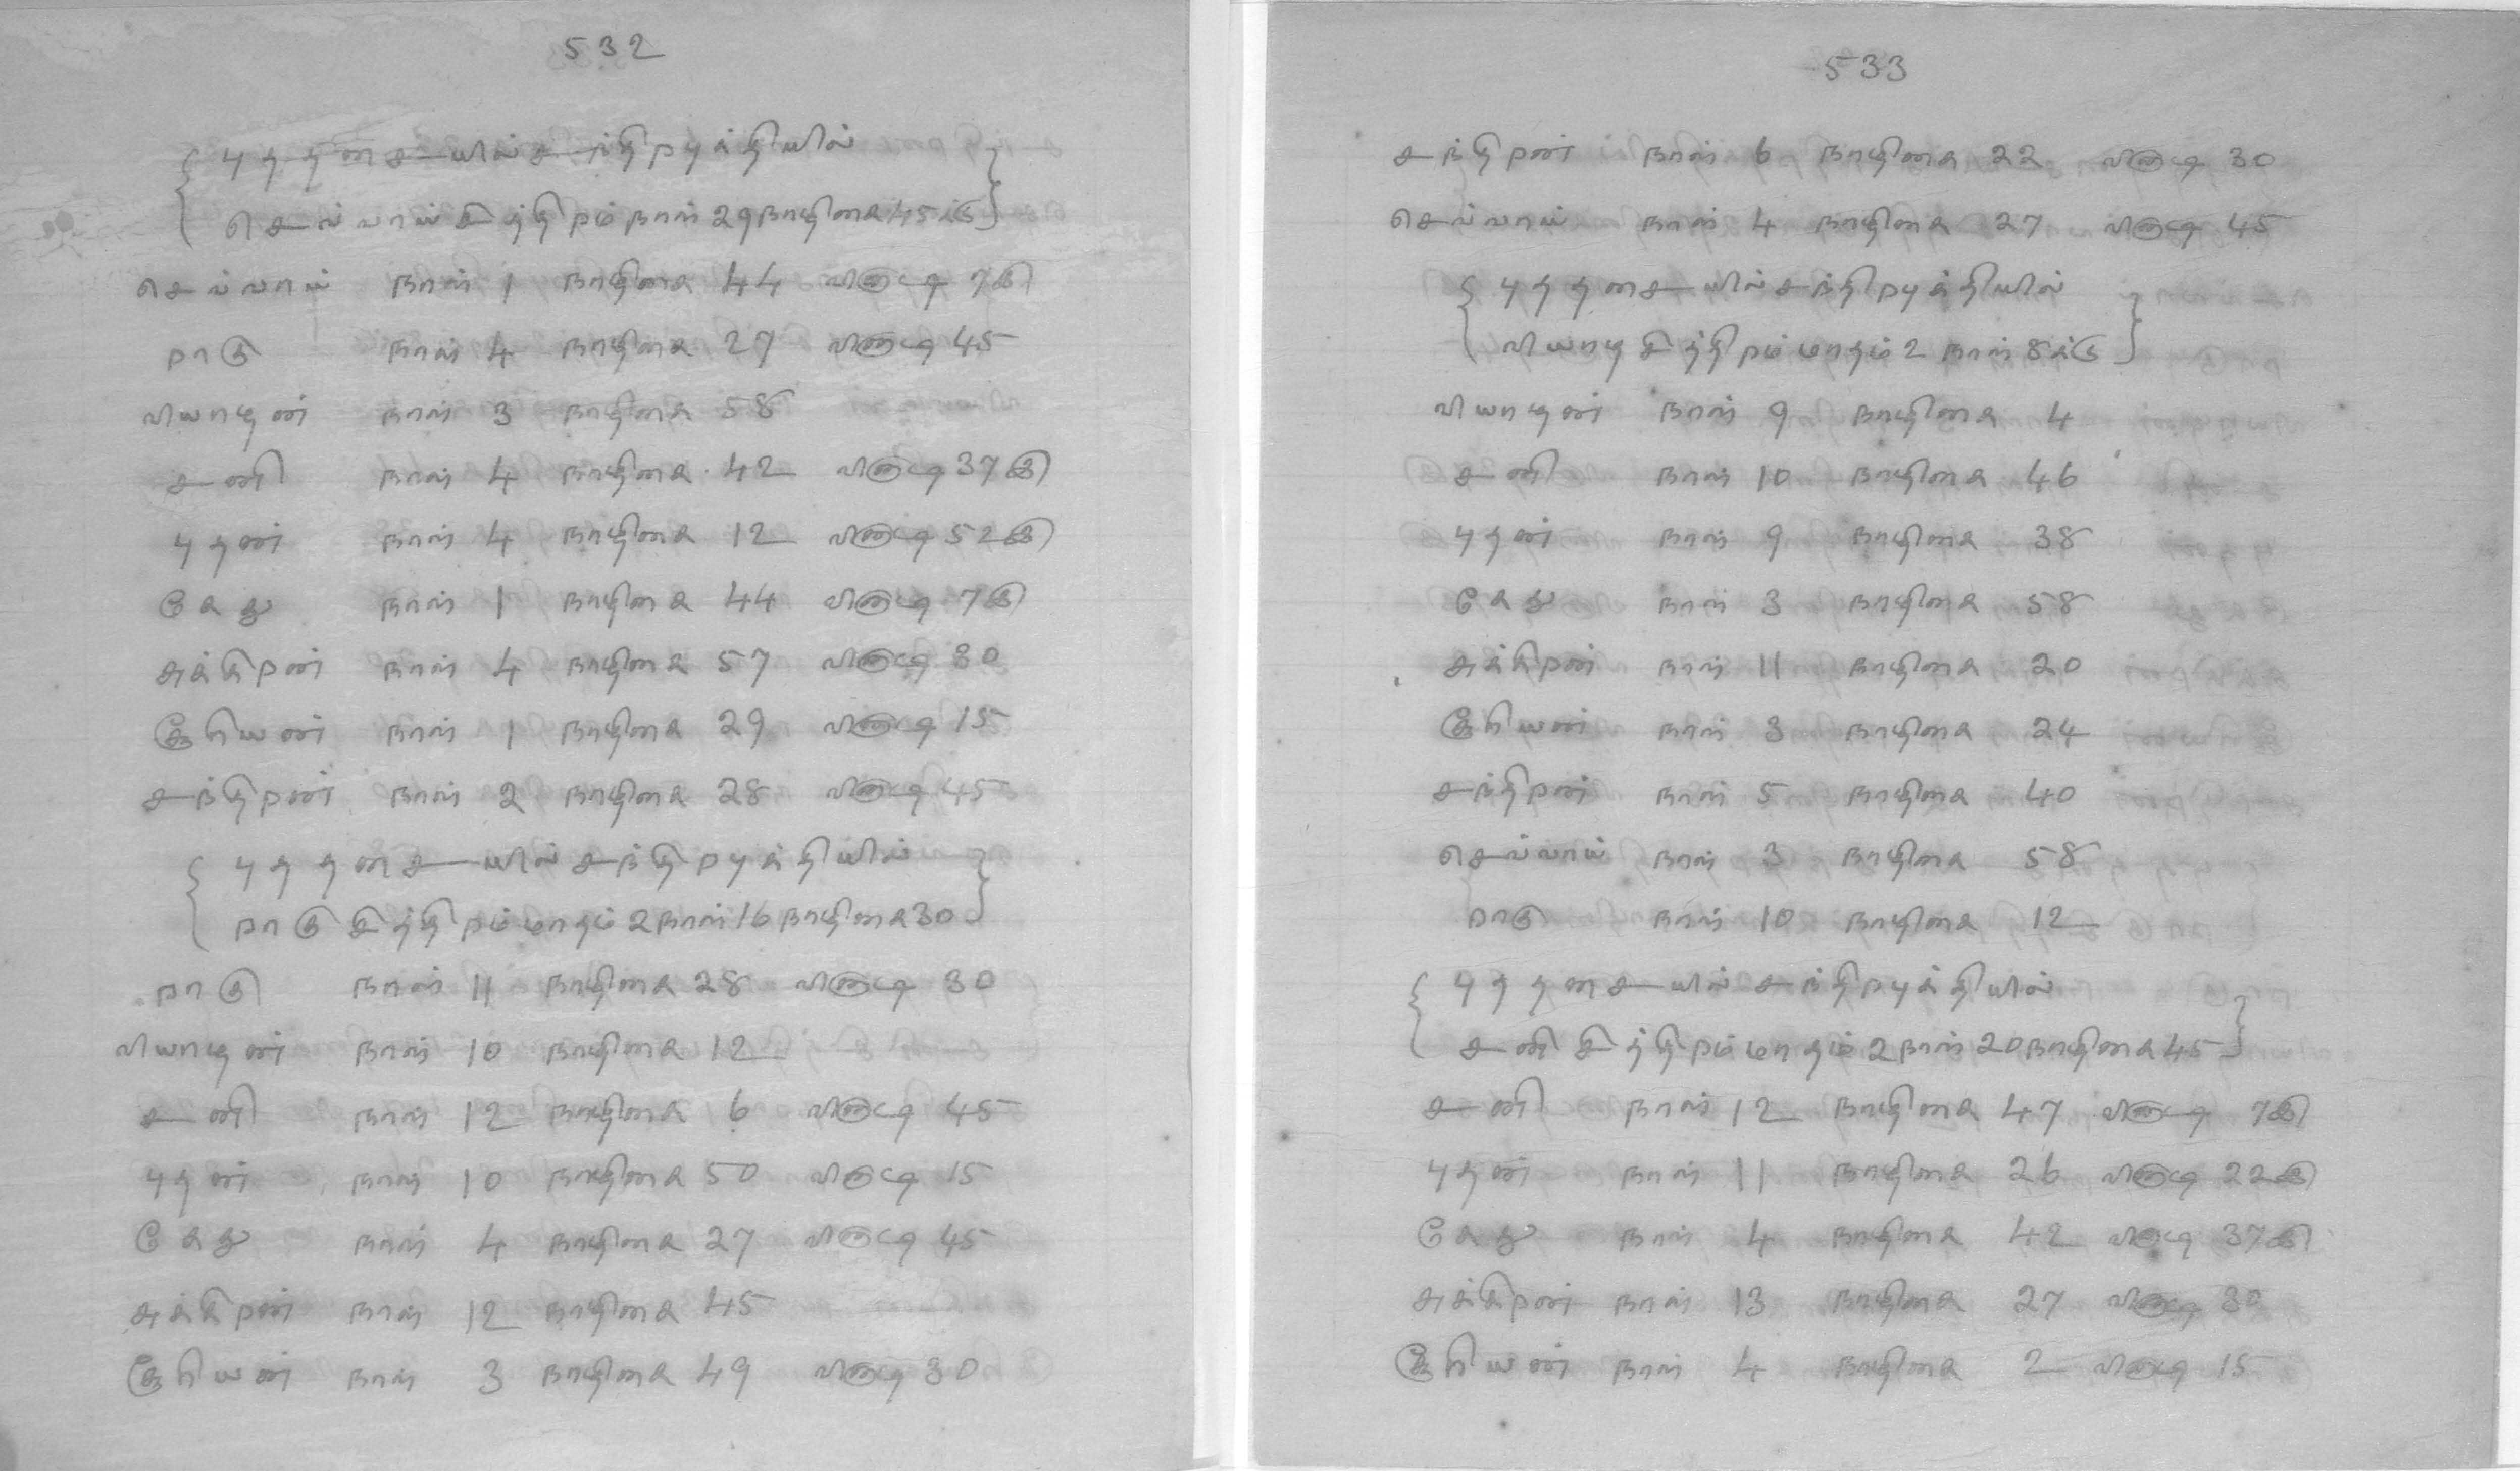 532
{ புததசையில் சந்திரபுக்தியில்
செவ்வாய் சித்திரம் நாள் 29 நாழிகை 45க்கு }
செவ்வாய் நாள் 1 நாழிகை 44 விநாடி 7இ
ராகு நாள் 4 நாழிகை 27 விநாடி 45
வியாழன் நாள் 3 நாழிகை 58
சனி நாள் 4 நாழிகை 42 விநாடி 37இ
புதன் நாள் 4 நாழிகை 12 விநாடி 52இ
கேது நாள் 1 நாழிகை 44 விநாடி 7இ
சுக்கிரன் நாள் 4 நாழிகை 57 விநாடி 30
சூரியன் நாள் 1 நாழிகை 29 விநாடி 15
சந்திரன் நாள் 2 நாழிகை 28 விநாடி 45
{ புதததைசையில் சந்திரபுக்தியில்
ராகு சித்திரம் மாதம் 2 நாள் 16 நாழிகை 30 }
ராகு நாள் 11 நாழிகை 28 விநாடி 30
வியாழன் நாள் 10 நாழிகை 12
சனி நாள் 12 நாழிகை 6 விநாடி 45
புதன் நாள் 10 நாழிகை 50 விநாடி 15
கேது நாள் 4 நாழிகை 27 விநாடி 45
சுக்கிரன் நாள் 12 நாழிகை 45
சூரியன் நாள் 3 நாழிகை 49 விநாடி 30
533
சந்திரன் நாள் 6 நாழிகை 22 விநாடி 30
செவ்வாய் நாள் 4 நாழிகை 27 விநாடி 45
{ புதததைசையில் சந்திரபுக்தியில்
வியாழ சித்திரம் மாதம் 2 நாள் 8க்கு }
வியாழன் நாள் 9 நாழிகை 4
சனி நாள் 10 நாழிகை 46
புதன் நாள் 9 நாழிகை 38
கேது நாள் 3 நாழிகை 58
சுக்கிரன் நாள் 11 நாழிகை 20
சூரியன் நாள் 3 நாழிகை 24
சந்திரன் நாள் 5 நாழிகை 40
செவ்வாய் நாள் 3 நாழிகை 58
ராகு நாள் 10 நாழிகை 12
{ புதததைசையில் சந்திரபுக்தியில்
சனி சித்திரம் மாதம் 2 நாள் 20 நாழிகை 45 }
சனி நாள் 12 நாழிகை 47 விநாடி 7இ
புதன் நாள் 11 நாழிகை 26 விநாடி 22இ
கேது நாள் 4 நாழிகை 42 விநாடி 37இ
சுக்கிரன் நாள் 13 நாழிகை 27 விநாடி 30
சூரியன் நாள் 4 நாழிகை 2 விநாடி 15